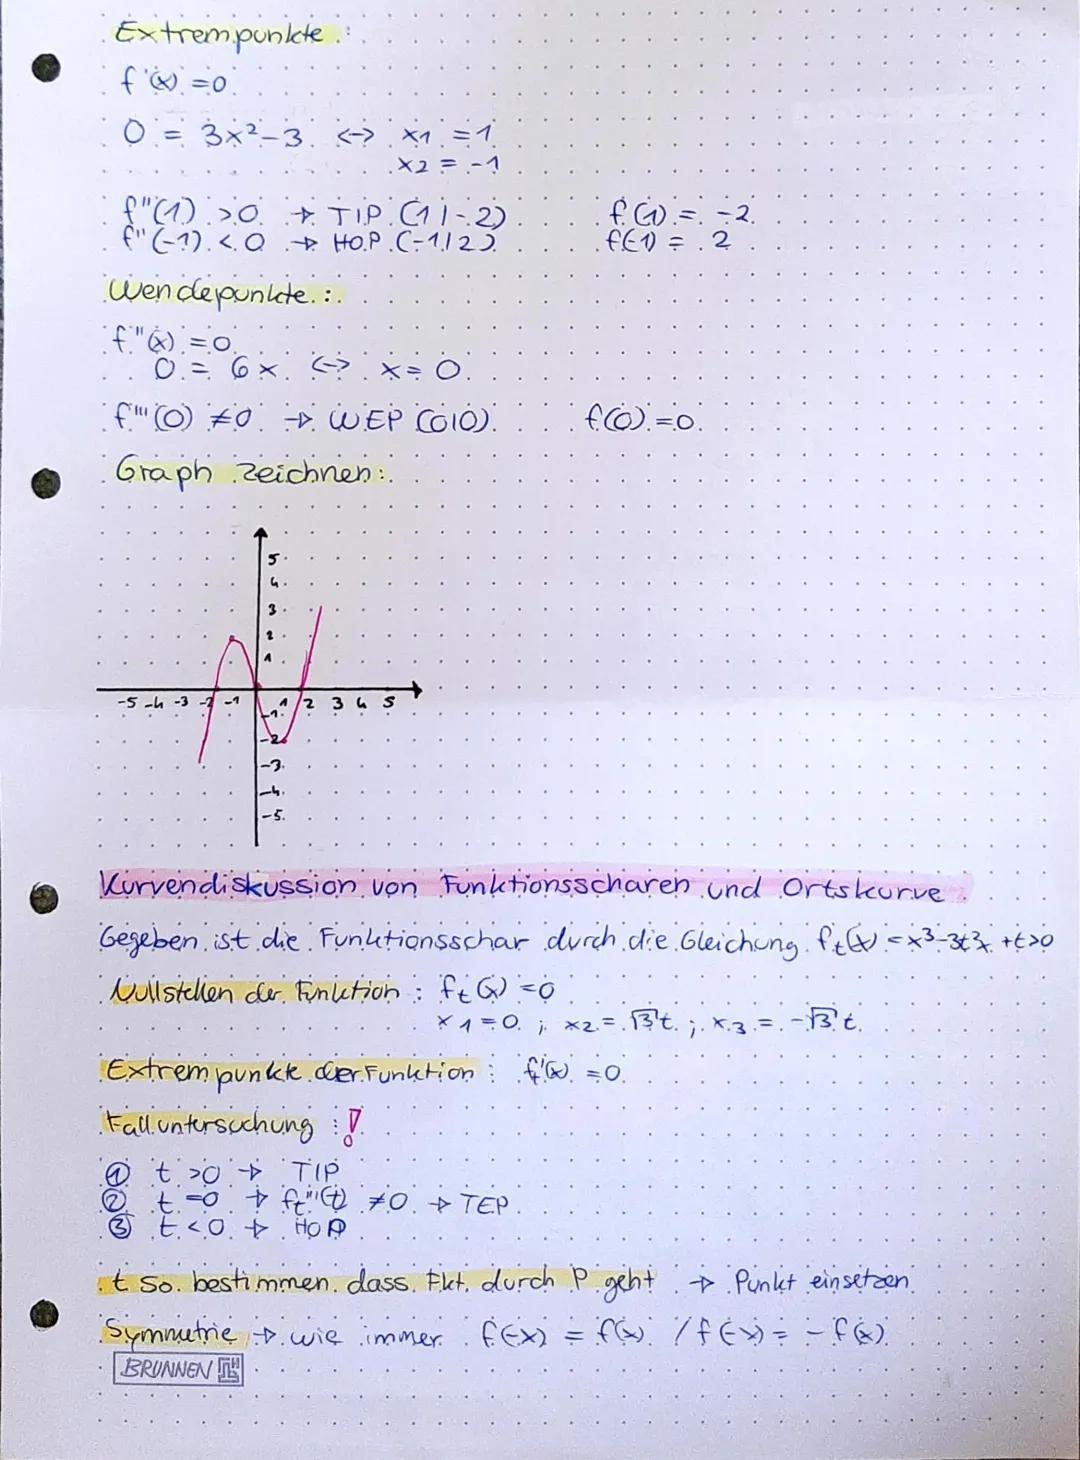 Extrempunkte:
f'(x) = 0
0 = 3x²-3 <-> x1 = 1
x2 = -1
f"(1) > 0 → TIP (1|-2) f(1) = -2
f"(-1) < 0 → HOP (-1|2) f(-1) = 2
Wendepunkte:
f"(x) = 0
0 = 6x <-> x = 0
f'''(0) ≠ 0 → WEP (0|0) f(0) = 0
Graph zeichnen:
5
4
3
2
1
-5 -4 -3 -2 -1 1 2 3 4 5
-1
-2
-3
-4
-5
Kurvendiskussion von Funktionsscharen und Ortskurve
Gegeben ist die Funktionsschar durch die Gleichung ft(x) = x³-3t²x +t>0
Nullstellen der Funktion : ft(x) = 0
x1 = 0 ; x2 = √3't ; x3 = -√3't
Extrempunkte der Funktion : f'(x) = 0
Falluntersuchung : !
① t > 0 → TIP
② t = 0 → ft'''(t) ≠ 0 → TEP
③ t < 0 → HOP
t so bestimmen dass Fkt. durch P geht → Punkt einsetzen
Symmetrie → wie immer f(-x) = f(x) / f(-x) = -f(x)
BRUNNEN